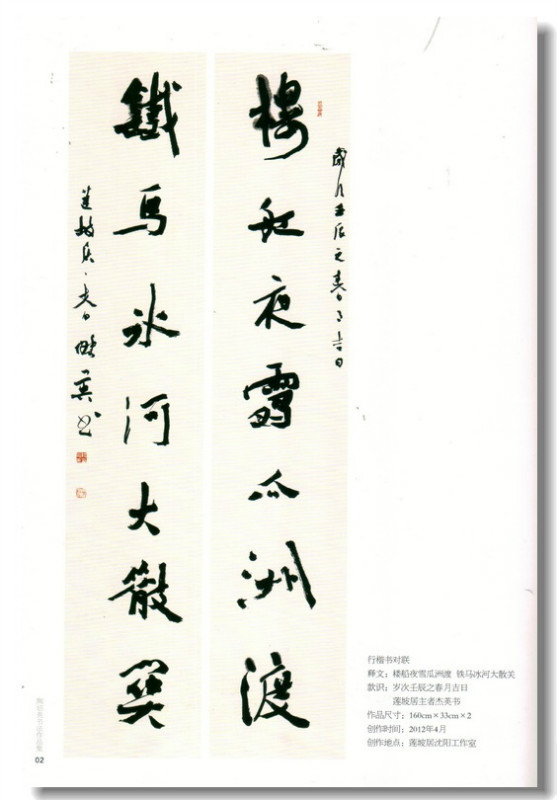 歲次壬辰之春月吉日
樓船夜雪瓜洲渡
鐵馬冰河大散關
莲坡居主者傑英书
行楷书对联
释文：楼船夜雪瓜洲渡 铁马冰河大散关
款识：岁次壬辰之春月吉日
莲坡居主者杰英书
作品尺寸：160cm×33cm×2
创作时间：2012年4月
创作地点：莲坡居沈阳工作室
02